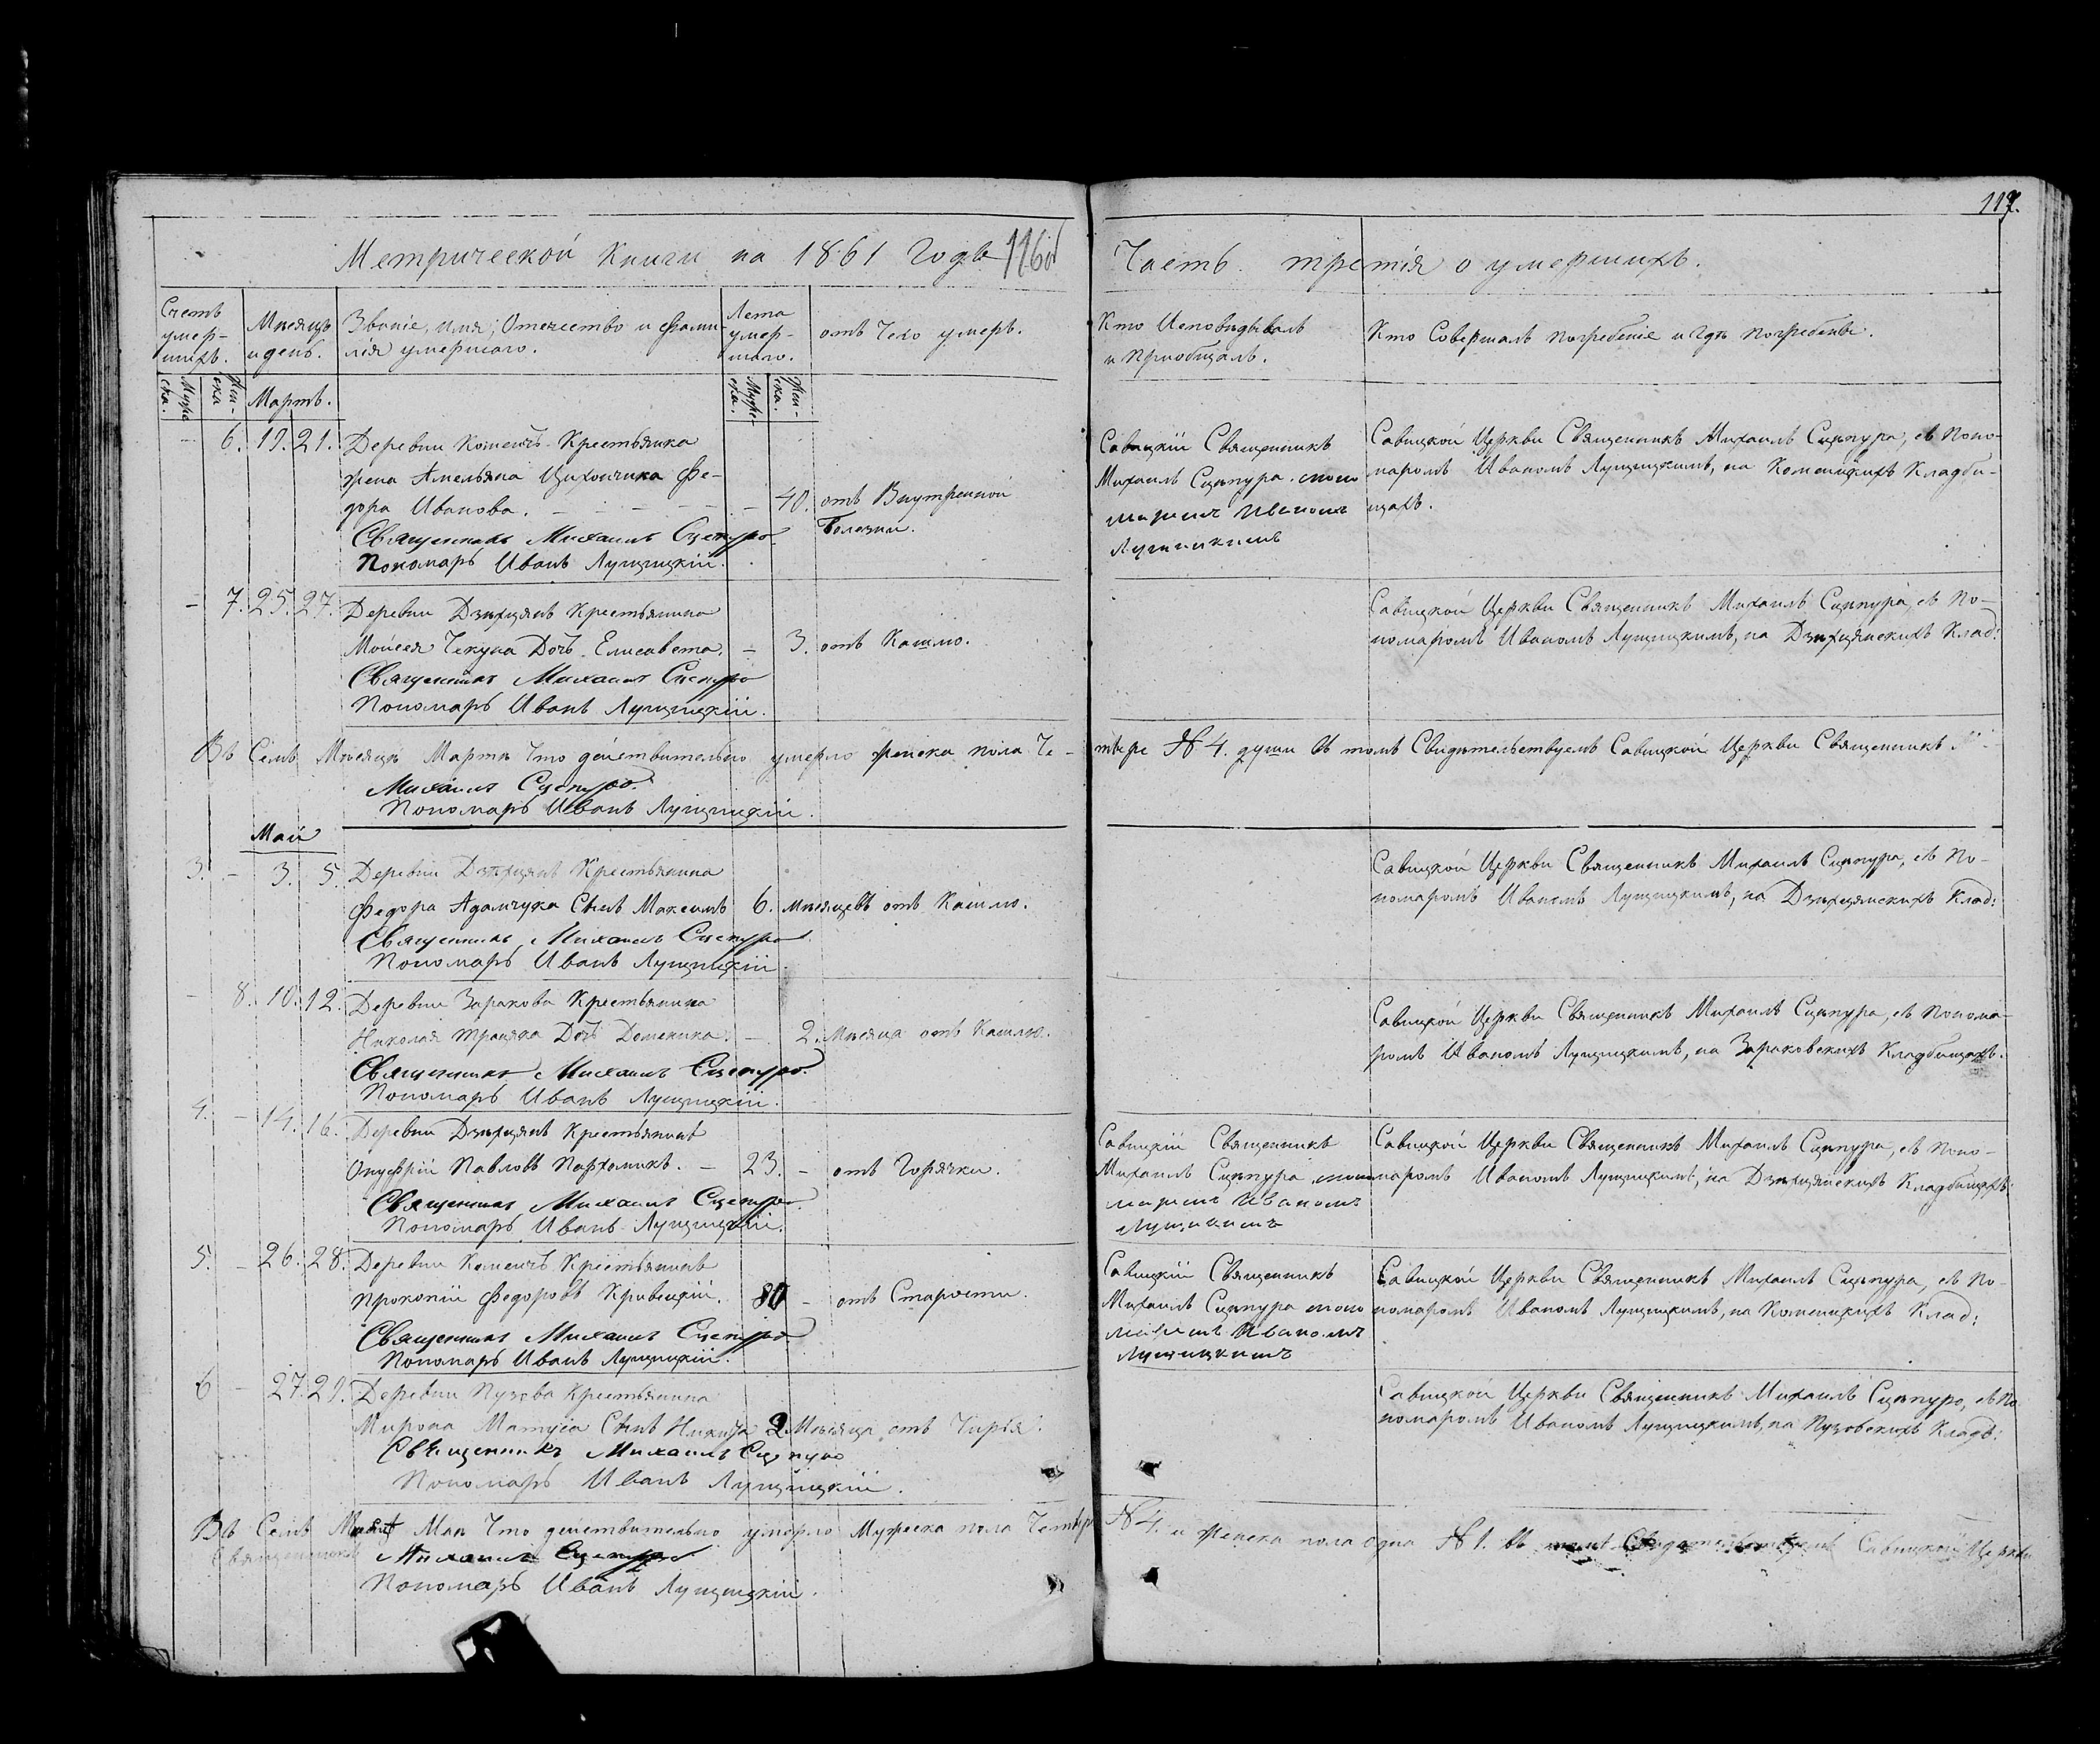 117.
Метрической Книги на 1861 Годъ 116об
Часть третія о умершихъ.
Счетъ умер-шихъ.
Мѣсяцъ и день.
Званіе, имя, Отечество и фами-
лія умершаго.
Лета умер-шаго.
отъ Чего умеръ.
Кто Исповѣдывалъ
и Пріобщалъ.
Кто Совершалъ погребеніе и гдѣ погребены.
Муже-ска.
Жен-ска.
Мартъ.
Муже-ска.
Жен-ска.
– 6. 19. 21. Деревни Коменчъ Крестьянка
жена Амельяна Цихончика Фе-
дора Иванова. – 40. отъ Внутренной
болезни.
Священникъ Михаилъ Сцепуро
Пономарь Иванъ Лущицкій.
Савицкій Священникъ
Михаилъ Сцѣпура. споно
маремъ Иваномъ
Лущицкимъ
Савицкой Церкви Священникъ Михаилъ Сцѣпура, съ Поно-
маромъ Иваномъ Лущицкимъ, на Коменицкихъ Кладби-
щахъ.
– 7. 25. 27. Деревни Дзѣхцянъ Крестьянина
Моисея Чекуна Дочь Елисавета. – 3. отъ Кашлю.
Священникъ Михаилъ Сцепуро
Пономарь Иванъ Лущицкій.
Савицкой Церкви Священникъ Михаилъ Сцѣпура, съ По-
номаромъ Иваномъ Лущицкимъ, на Дзѣхцянскихъ Клад:
Въ Семъ Мѣсяцѣ Мартѣ Что действительно умерло женска пола Че-
твере № 4. души въ томъ Свидѣтельствуемъ Савицкой Церкви Священникъ
Михаилъ Сцепуро.
Пономарь Иванъ Лущицкій.
Май
3. – 3. 5. Деревни Дзѣхцянъ Крестьянина
Федора Адамчука Сынъ Максимъ 6. мѣсяцевъ отъ Кашлю.
Священникъ Михаилъ Сцепуро
Пономарь Иванъ Лущицкій.
Савицкой Церкви Священникъ Михаилъ Сцѣпура, съ По-
номаромъ Иваномъ Лущицкимъ, на Дзѣхцянскихъ Клад:
– 8. 10. 12. Деревни Заракова Крестьянина
Николая Трацяка Дочь Доменика. – 2. Мѣсяца отъ Кашлю.
Священникъ Михаилъ Сцепуро.
Пономарь Иванъ Лущицкій.
Савицкой Церкви Священникъ Михаилъ Сцѣпура, съ Понома-
ромъ Иваномъ Лущицкимъ, на Зараковскихъ Кладбищахъ.
4. – 14. 16. Деревни Дзѣхцянъ Крестьянинъ
Онуфрій Павловъ Пархомикъ. – 23. – отъ Горячки.
Священникъ Михаилъ Сцепуро.
Пономарь Иванъ Лущицкій.
Савицкій Священникъ
Михаилъ Сцѣпура споно
маремъ Иваномъ
Лущицкимъ
Савицкой Церкви Священникъ Михаилъ Сцѣпура, съ Поно-
маромъ Иваномъ Лущицкимъ, на Дзѣхцянскихъ Кладбищахъ.
5. – 26. 28. Деревни Коменчъ Крестьянинъ
Прокопій Федоровъ Кривецкій. 80 – отъ Старости.
Священникъ Михаилъ Сцепуро
Пономарь Иванъ Лущицкій.
Савицкій Священникъ
Михаилъ Сцѣпура споно
маремъ Иваномъ
Лущицкимъ
Савицкой Церкви Священникъ Михаилъ Сцѣпура, съ По-
номаромъ Иваномъ Лущицкимъ, на Коменицкихъ Клад:
6 – 27. 29. Деревни Пузова Крестьянина
Мирона Матуса Сынъ Никита 2 Мѣсяца отъ Чирья.
Священникъ Михаилъ Сцепуро
Пономарь Иванъ Лущицкій.
Савицкой Церкви Священникъ Михаилъ Сцѣпуро, съ По
номаромъ Иваномъ Лущицкимъ, на Пузовскихъ Кладъ:
Въ Семъ Маѣ Что действительно умерло Мужеска пола Четвер
№ 4. и женска пола одна № 1. въ томъ Свидѣтельствуемъ Савицкой Церкви
Священникъ Михаилъ Сцепуро.
Пономарь Иванъ Лущицкій.